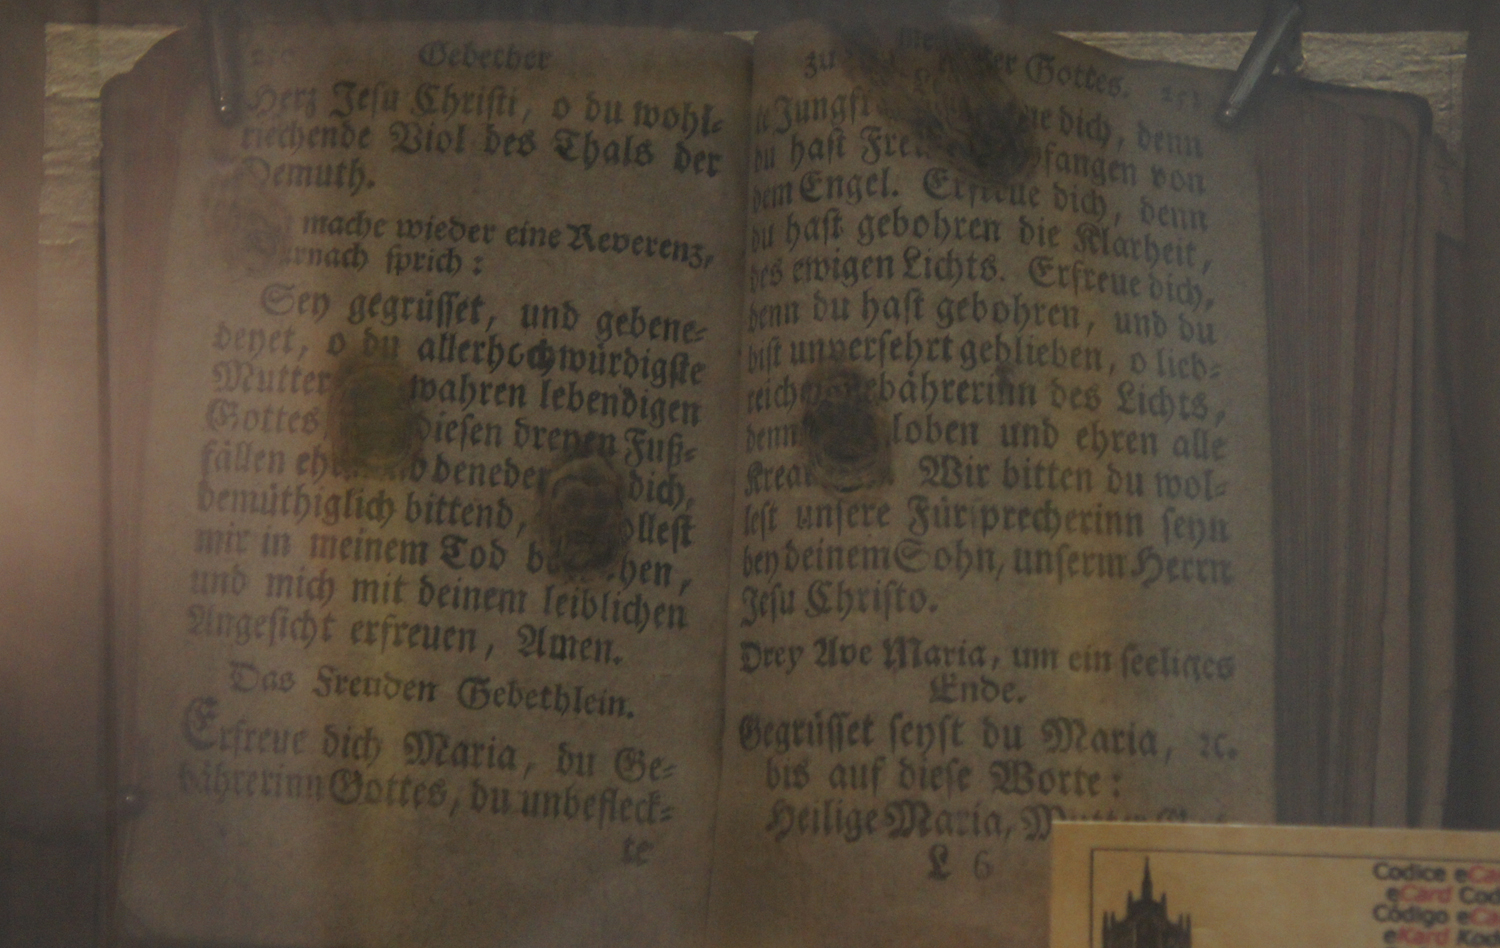 Gebether
Herz Jesu Christi, o du wohl-
riechende Viol des Thals der
Demuth.
mache wieder eine Reverenz,
darnach sprich:
Sey gegrüsset, und gebene-
deyet, o du allerhochwürdigste
Mutter wahren lebendigen
Gottes diesen dreyen Fuß-
fällen dich,
demüthiglich bittend,
mir in meinem Tod
und mich mit deinem leiblichen
Angesicht erfreuen, Amen.
Das Freuden Gebethlein.
Erfreue dich Maria, du Ge-
bährerinn Gottes, du unbefleck-
te
zu Gottes. 251
te dich, denn
du hast von
dem Engel. Erfreue dich, denn
du hast gebohren die Klarheit,
des ewigen Lichts. Erfreue dich,
denn du hast gebohren, und du
bist unversehrt geblieben, o lieb-
des Lichts,
denn loben und ehren alle
Wir bitten du wol-
lest unsere Fürsprecherinn seyn
bey deinem Sohn, unserm Herrn
Jesu Christo.
Drey Ave Maria, um ein seeliges
Ende.
Gegrüsset seyst du Maria, ꝛc.
bis auf diese Worte:
Heilige Maria, Mutter
L 6
Codice
eCard
Código
eKard